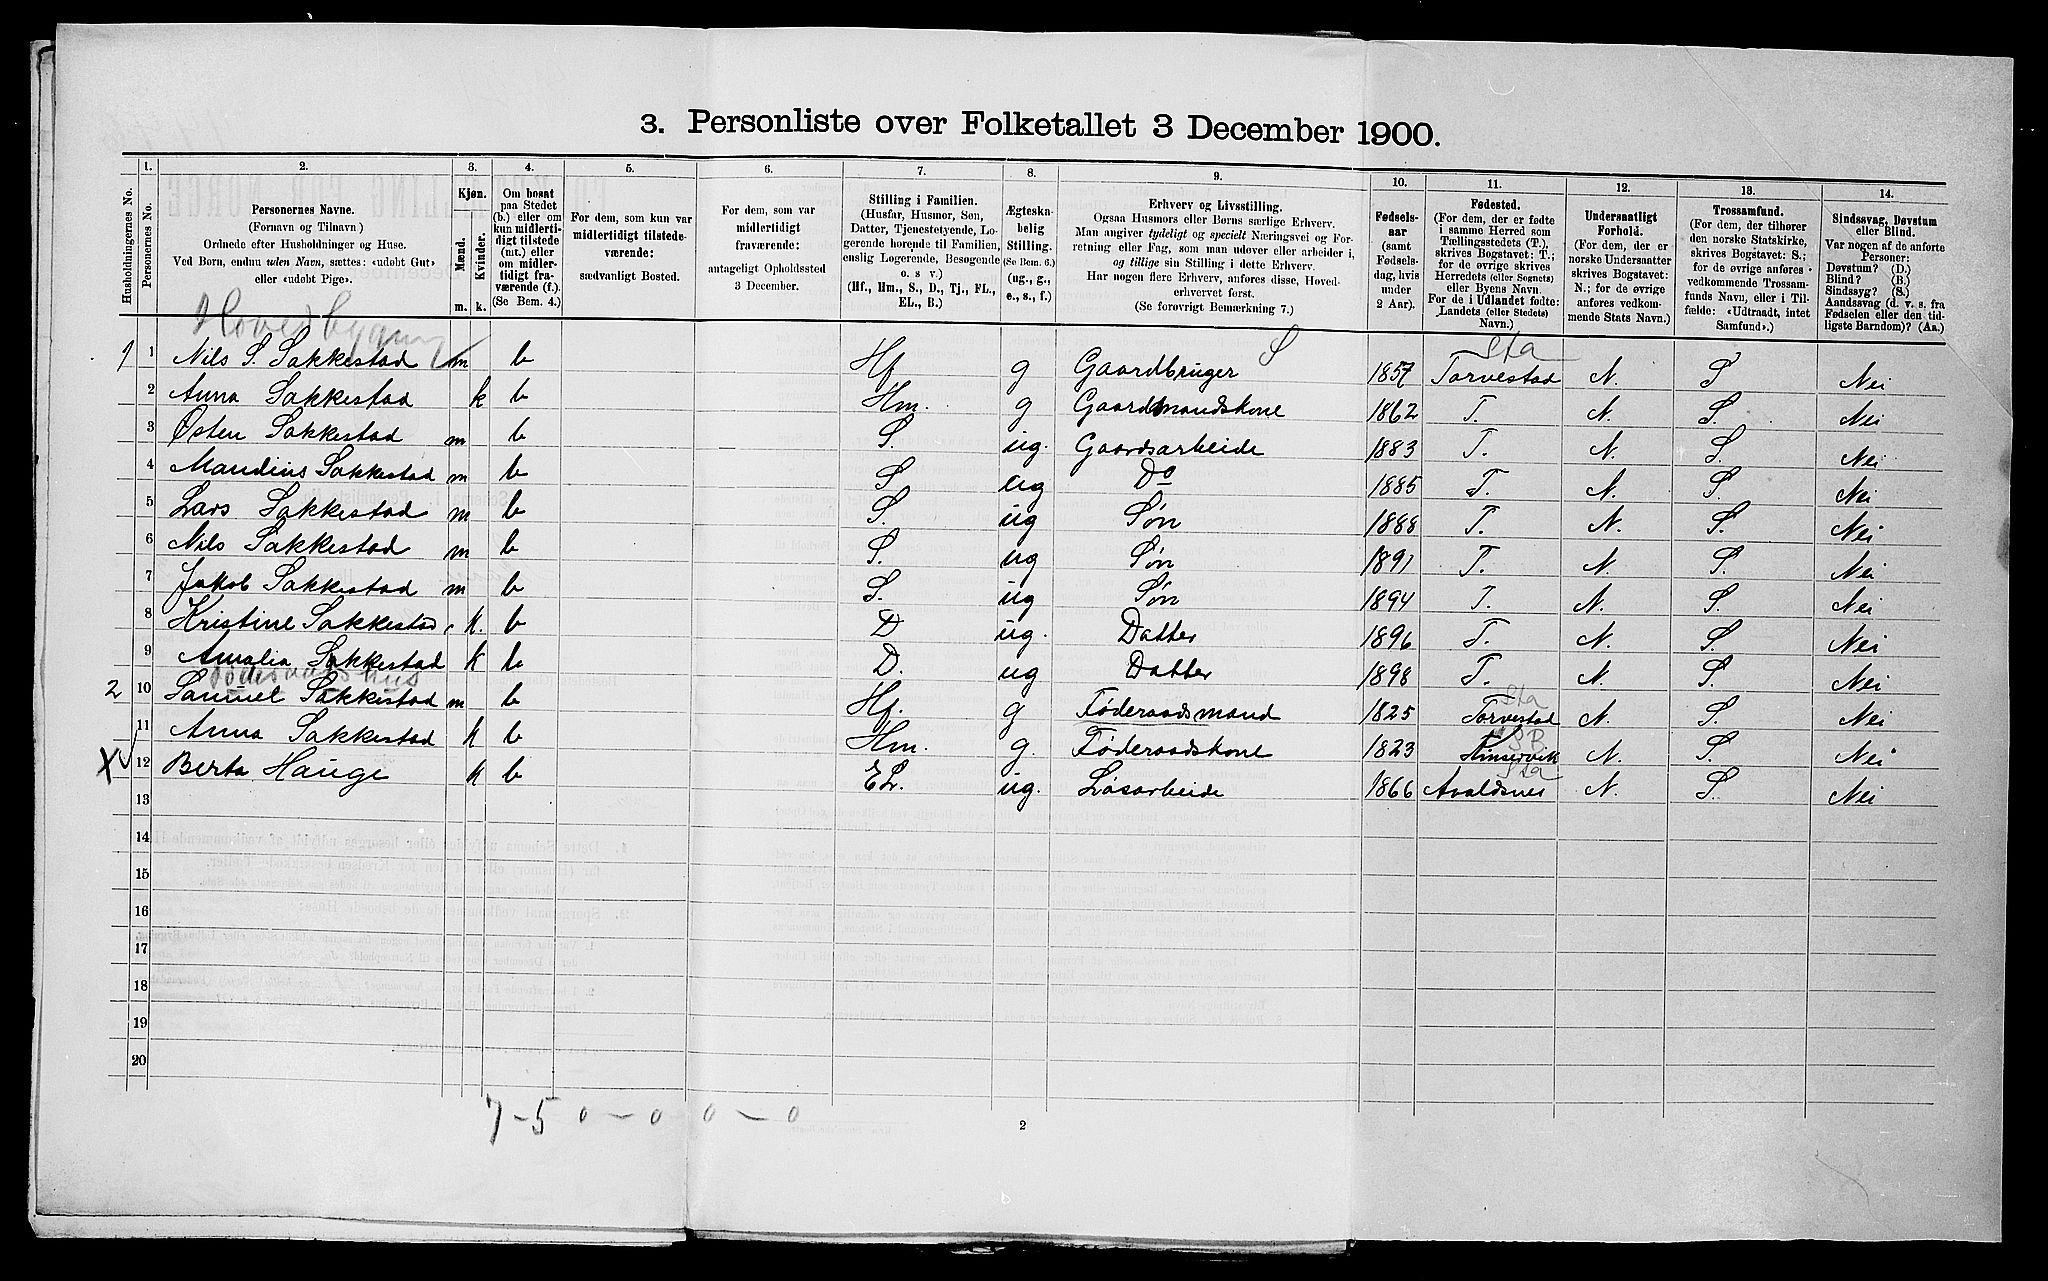 3. Personliste over Folketallet 3 December 1900.
Husholdningernes No.
1. Personernes No.
2. Personernes Navne. (Fornavn og Tilnavn) Ordnede efter Husholdninger og Huse. Ved Børn, endnu uden Navn, sættes: «udøbt Gut» eller «udøbt Pige».
3. Kjøn. Mænd. Kvinder. m. k.
4. Om bosat paa Stedet (b.) eller om kun midlertidigt tilstede (mt.) eller om midlertidigt fraværende (f.) (Se Bem. 4.)
5. For dem, som kun var midlertidigt tilstedeværende: sædvanligt Bosted.
6. For dem, som var midlertidigt fraværende: antageligt Opholdssted 3 December.
7. Stilling i Familien. (Husfar, Husmor, Søn, Datter, Tjenestetyende, Logerende hørende til Familien, enslig Logerende, Besøgende o. s v.) (Hf., Hm., S., D., Tj., FL., EL., B.)
8. Ægteskabelig Stilling. (Se Bem. 6.) (ug., g., e., s., f.)
9. Erhverv og Livsstilling. Ogsaa Husmors eller Børns særlige Erhverv. Man angiver tydeligt og specielt Næringsvei og Forretning eller Fag, som man udøver eller arbeider i, og tillige sin Stilling i dette Erhverv. Har nogen flere Erhverv, anføres disse, Hovederhvervet først. (Se forøvrigt Bemærkning 7.)
10. Fødselsaar (samt Fødselsdag, hvis under 2 Aar).
11. Fødested. (For dem, der er fødte i samme Herred som Tællingsstedets (T.), skrives Bogstavet: T.; for de øvrige skrives Herredets (eller Sognets) eller Byens Navn. For de i Udlandet fødte: Landets (eller Stedets) Navn.)
12. Undersaatligt Forhold. (For dem, der er norske Undersaatter skrives Bogstavet: N.; for de øvrige anføres vedkommende Stats Navn.)
13. Trossamfund. (For dem, der tilhører den norske Statskirke, skrives Bogstavet: S.; for de øvrige anføres vedkommende Trossamfunds Navn, eller i Tilfælde: «Udtraadt, intet Samfund».)
14. Sindssvag, Døvstum eller Blind. Var nogen af de anførte Personer: Døvstum? (D.) Blind? (B.) Sindssyg? (S.) Aandssvag (d. v. s. fra Fødselen eller den tidligste Barndom)? (Aa.)
Hovedbygning
Sta
1 1 Nils S. Sakkestad m b Hf g Gaardbruger S 1857 Torvestad N. S Nei
2 Anna Sakkestad k b Hm. g Gaardmandskone 1862 T. N. S. Nei
3 Østen Sakkestad m b S. ug. Gaardsarbeide 1883 T. N. S. Nei
4 Maudius Sakkestad m b S ug Do 1885 T. N. S. Nei
5 Lars Sakkestad m b S. ug Søn 1888 T. N. S. Nei
6 Nils Sakkestad m b S. ug Søn 1891 T. N. S. Nei
7 Jakob Sakkestad m b S. ug Søn 1894 T. N. S. Nei
8 Kristine Sakkestad k. b D ug. Datter 1896 T. N. S. Nei
9 Amalia Sakkestad k b D. ug Datter 1898 T. N. S. Nei
Føderaadshus
Sta
2 10 Samuel Sakkestad m b Hf. g Føderaadsmand 1825 Torvestad N. S. Nei
SB
11 Anna Sakkestad k b Hm. g. Føderaadskone 1823 Kinservik N. S. Nei
Sta
X 12 Berta Hauge k b EL. ug. Løsarbeide 1866 Avaldsnes N. S. Nei
13
14
15
16
17
18
19
20
7 - 5 0 - 0 0 - 0
2